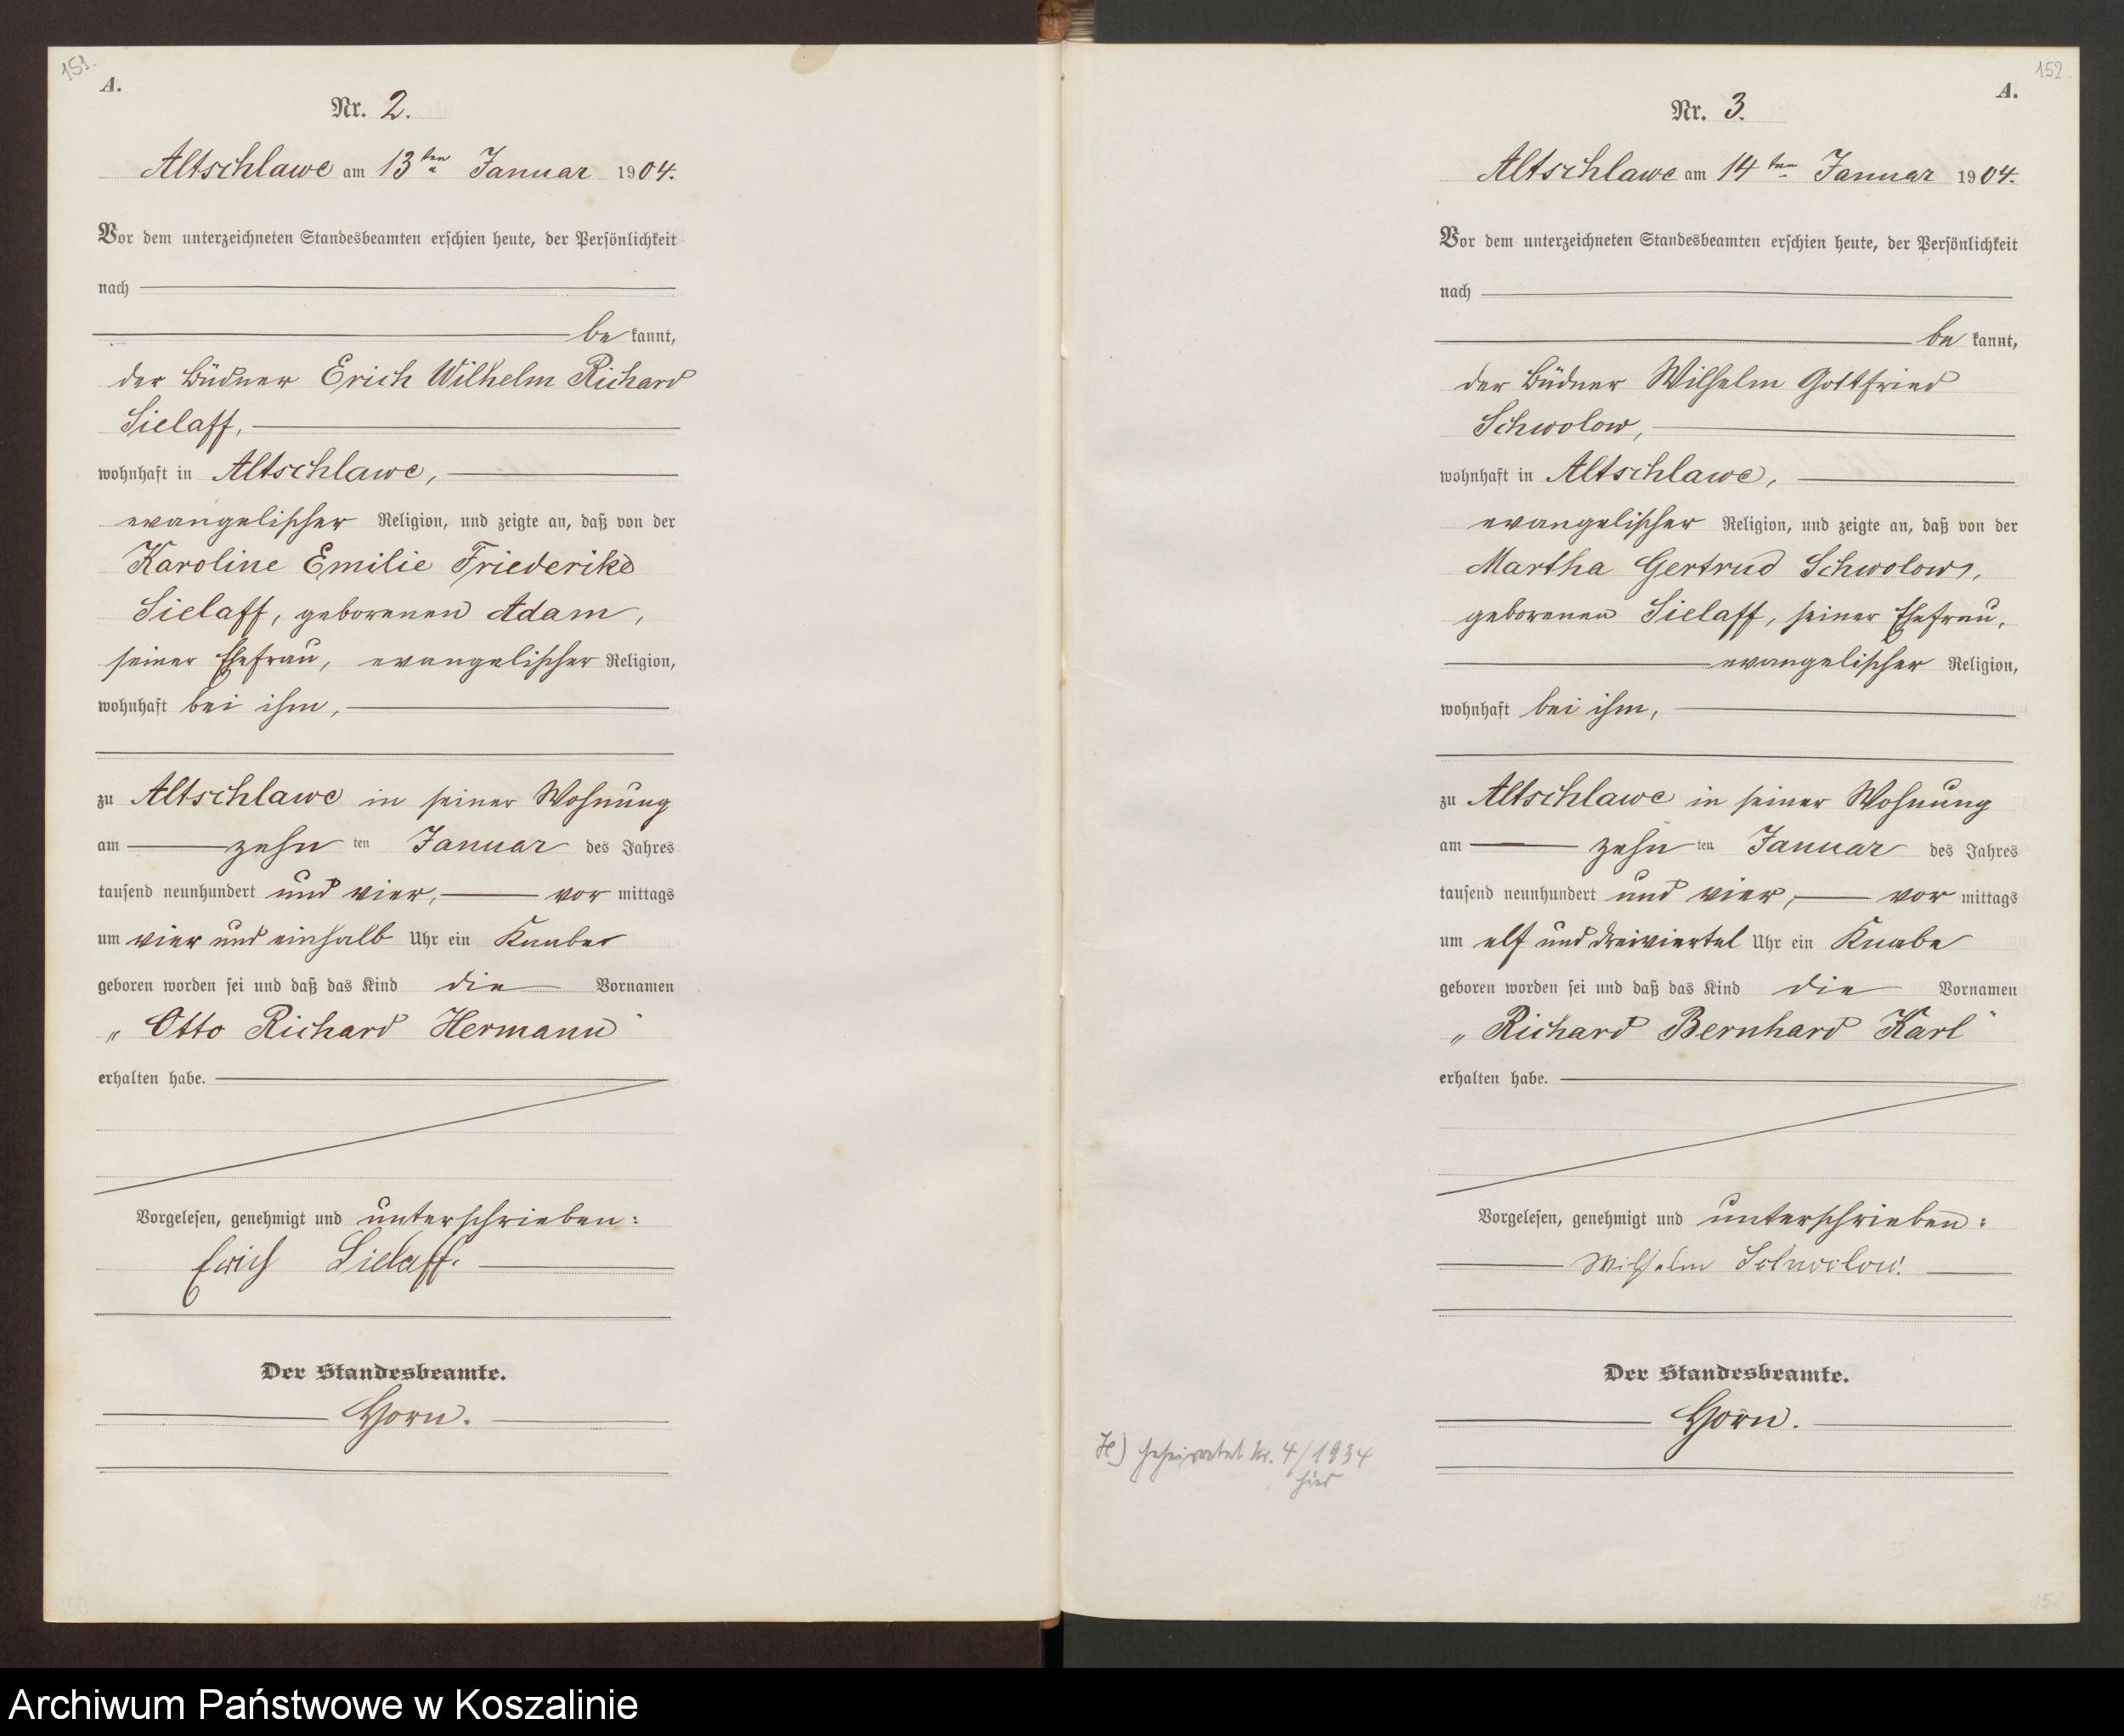 151.
A.
Nr. 2.
Altschlawe am 13ten Januar 1904.
Vor dem unterzeichneten Standesbeamten erschien heute, der Persönlichkeit
nach
be kannt,
der Büdner Erich Wilhelm Richard
Sielaff,
wohnhaft in Altschlawe,
evangelischer Religion, und zeigte an, daß von der
Karoline Emilie Friederike
Sielaff, geborenen Adam,
seiner Ehefrau, evangelischer Religion,
wohnhaft bei ihm,
zu Altschlawe in seiner Wohnung
am zehn ten Januar des Jahres
tausend neunhundert und vier, vor mittags
um vier und einhalb Uhr ein Knabe
geboren worden sei und daß das Kind die Vornamen
„Otto Richard Hermann"
erhalten habe.
Vorgelesen, genehmigt und unterschrieben:
Erich Sielaff.
Der Standesbeamte.
Horn.
152.
A.
Nr. 3.
Altschlawe am 14ten Januar 1904.
Vor dem unterzeichneten Standesbeamten erschien heute, der Persönlichkeit
nach
be kannt,
der Büdner Wilhelm Gottfried
Schwolow,
wohnhaft in Altschlawe,
evangelischer Religion, und zeigte an, daß von der
Martha Gertrud Schwolow,
geborenen Sielaff, seiner Ehefrau,
evangelischer Religion,
wohnhaft bei ihm,
zu Altschlawe in seiner Wohnung
am zehn ten Januar des Jahres
tausend neunhundert und vier, vor mittags
um elf und dreiviertel Uhr ein Knabe
geboren worden sei und daß das Kind die Vornamen
„Richard Bernhard Karl"
erhalten habe.
Vorgelesen, genehmigt und unterschrieben:
Wilhelm Schwolow.
Der Standesbeamte.
Horn.
geheiratet Nr. 4/1934
hier
Archiwum Państwowe w Koszalinie